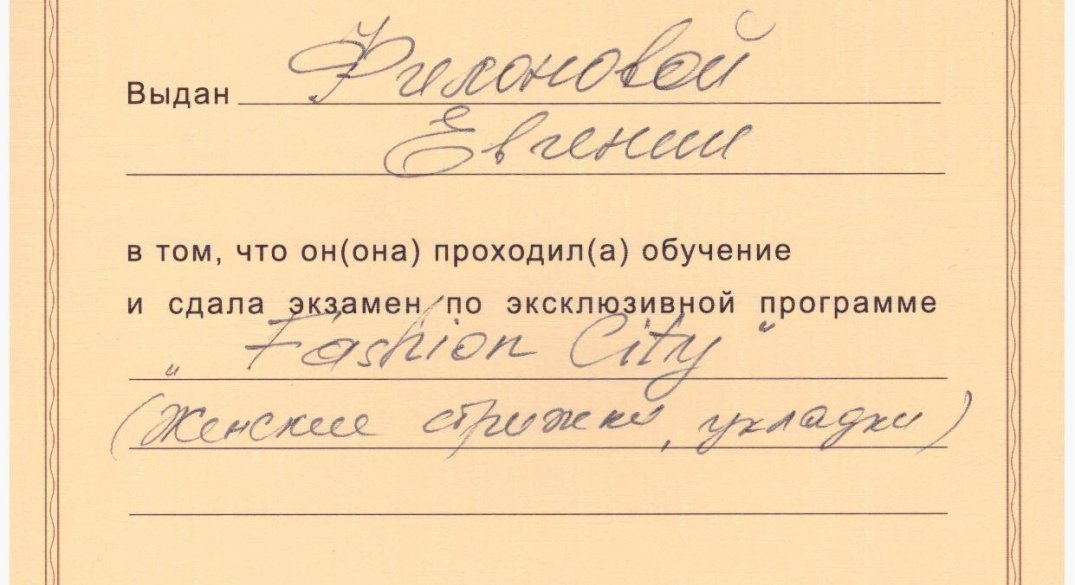 Выдан Филоновой
Евгении
в том, что он(она) проходил(а) обучение
и сдала экзамен по эксклюзивной программе
„Fashion City“
(Женские стрижки, укладки)